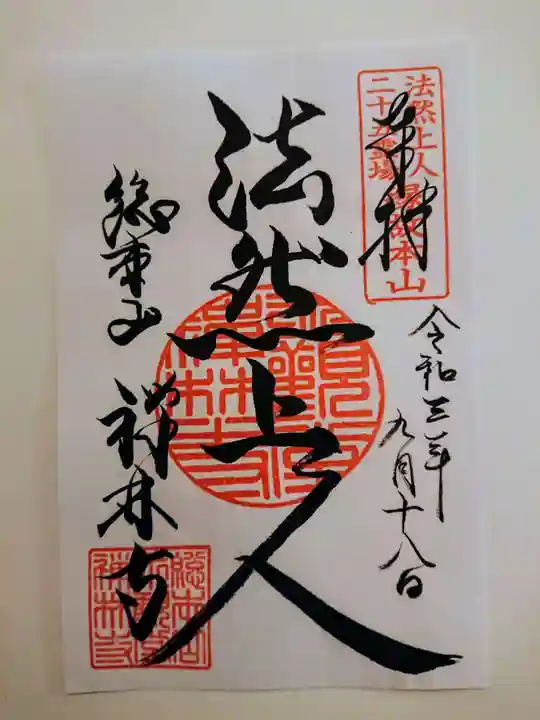 法然上人縁故本山
二十五霊場
奉拝
令和三年
九月十八日
法然上人
総本山 禅林寺